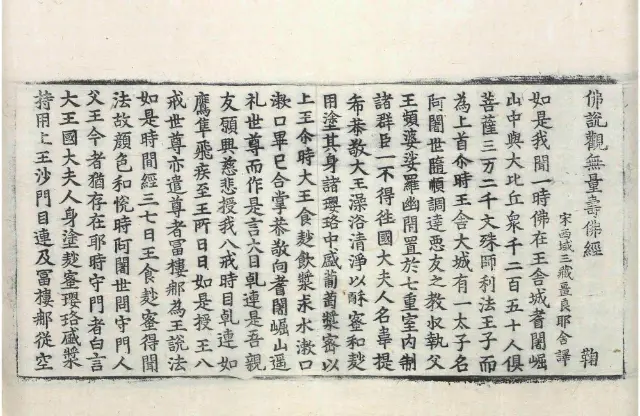 佛說觀無量壽佛經 鞠
宋西域三藏畺良耶舍譯
如是我聞一時佛在王舍城耆闍崛
山中與大比丘衆千二百五十人俱
菩薩三万二千文殊師利法王子而
為上首尒時王舍大城有一太子名
阿闍世隨順調達惡友之教収執父
王頻婆娑羅幽閇置於七重室内制
諸群臣一不得往國大夫人名韋提
希恭敬大王澡浴清淨以酥蜜和麨
用塗其身諸瓔珞中盛蒲萄漿密以
上王尒時大王食麨飲漿求水漱口
漱口畢已合掌恭敬向耆闍崛山遥
礼世尊而作是言大目乹連是吾親
友願興慈悲授我八戒時目乹連如
鷹隼飛疾至王所日日如是授王八
戒世尊亦遣尊者冨樓那為王說法
如是時間經三七日王食麨蜜得聞
法故顔色和恱時阿闍世問守門人
父王今者猶存在耶時守門者白言
大王國大夫人身塗麨蜜瓔珞盛漿
持用上王沙門目連及冨樓那從空